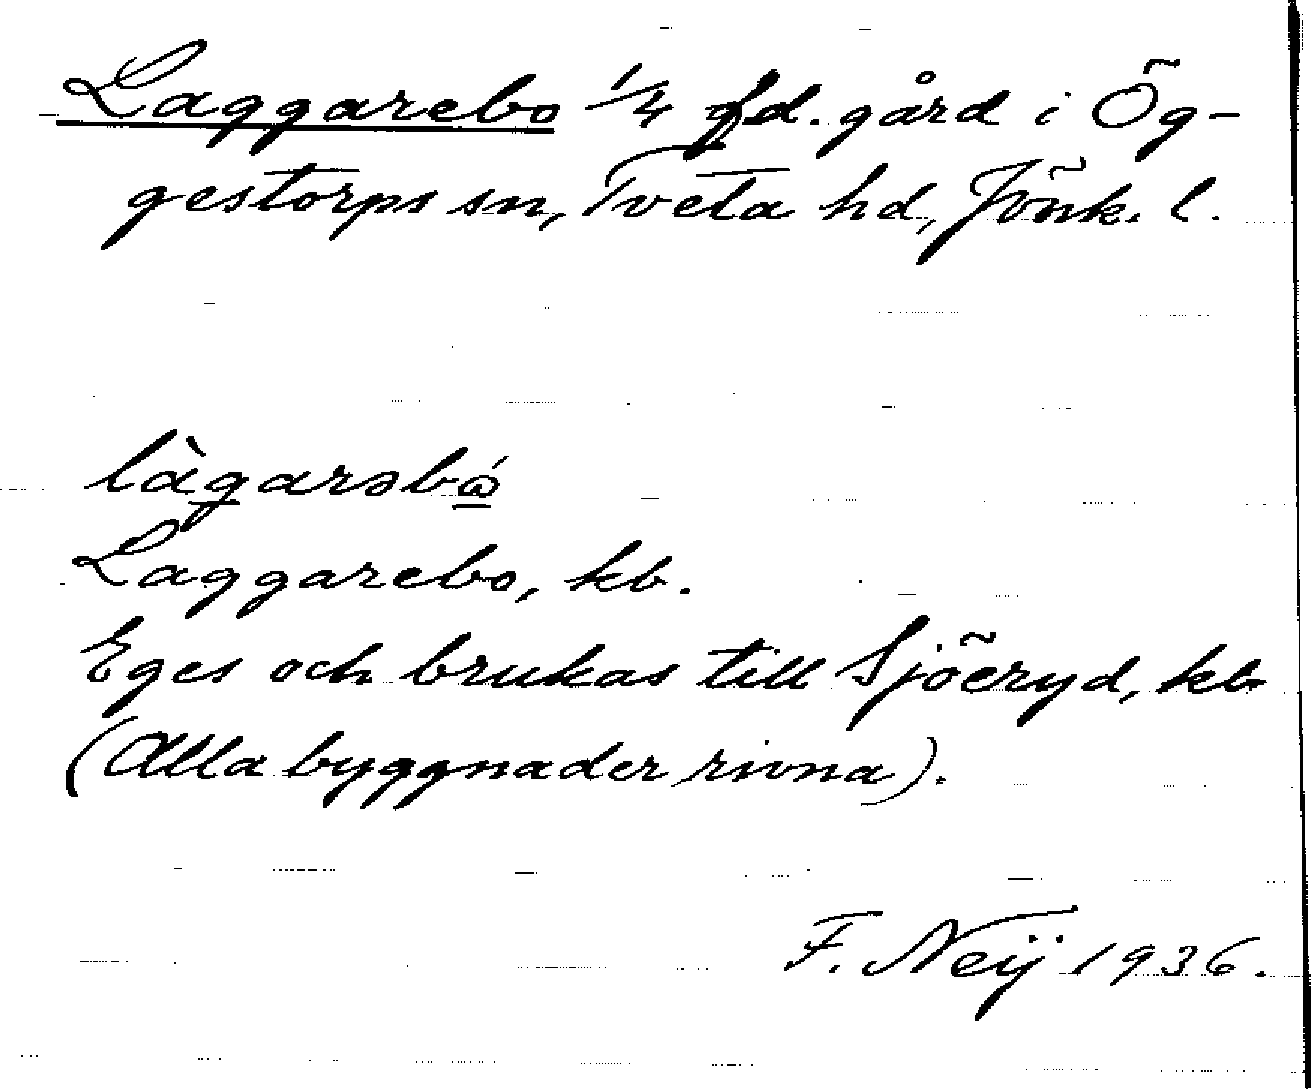 Laggarebo 1/4 fd. gård i Ög-
gestorps sn, Tveta hd, Jönk. l.
Laggarebo, kb.
Eges och brukas till Sjöeryd, kb.
(Alla byggnader rivna).
F. Neij 1936.